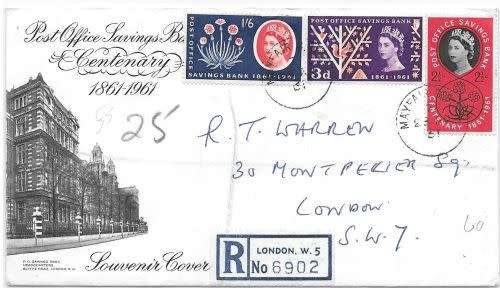 Post Office Savings Ba
Centenary
1861-1961
1/6
POST OFFICE
SAVINGS BANK 1861-1961
POST OFFICE SAVINGS BANK
3d
1861-1961
POST OFFICE SAVINGS BANK
2½ 2½
CENTENARY 1861-1961
MAYFA
25
R. T. WARREN
30 MONTPELIER Sq.
LONDON
S.W.7.
60
P.O. SAVINGS BANK
HEADQUARTERS
Souvenir Cover
R
LONDON, W.5
No 6902